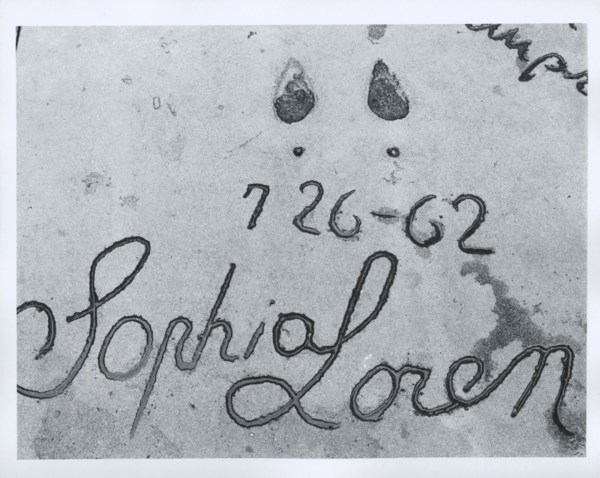 7 26-62
Sophia Loren